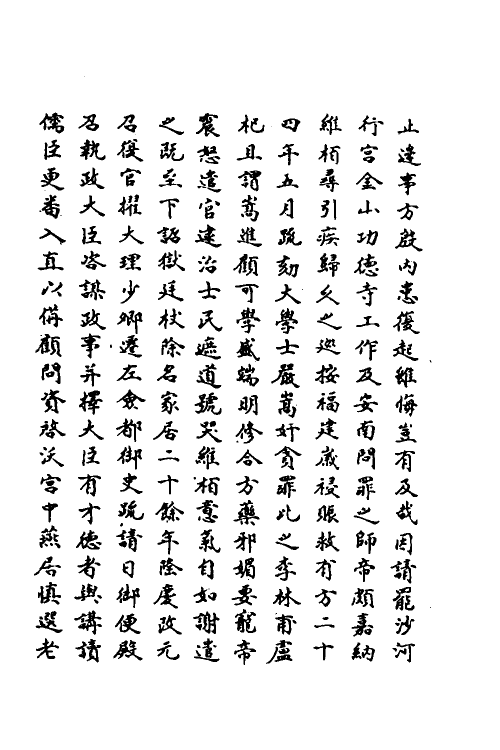 止邊事方殷內患復起雖悔豈有及哉因請罷沙河
行宮金山功德寺工作及安南問罪之師帝頗嘉納
維柏尋引疾歸久之廵按福建歲祲賑救有方二十
四年五月疏劾大學士嚴嵩奸貪罪比之李林甫盧
杞且謂嵩進顧可學盛端明修合方藥邪媚要寵帝
震怒遣官逮治士民遮道號哭維柏意氣自如謝遣
之既至下詔獄廷杖除名家居二十餘年隆慶改元
召復官擢大理少卿遷左僉都御史疏請日御便殿
召執政大臣咨謀政事并擇大臣有才德者與講讀
儒臣更番入直以備顧問資啓沃宮中燕居慎選老